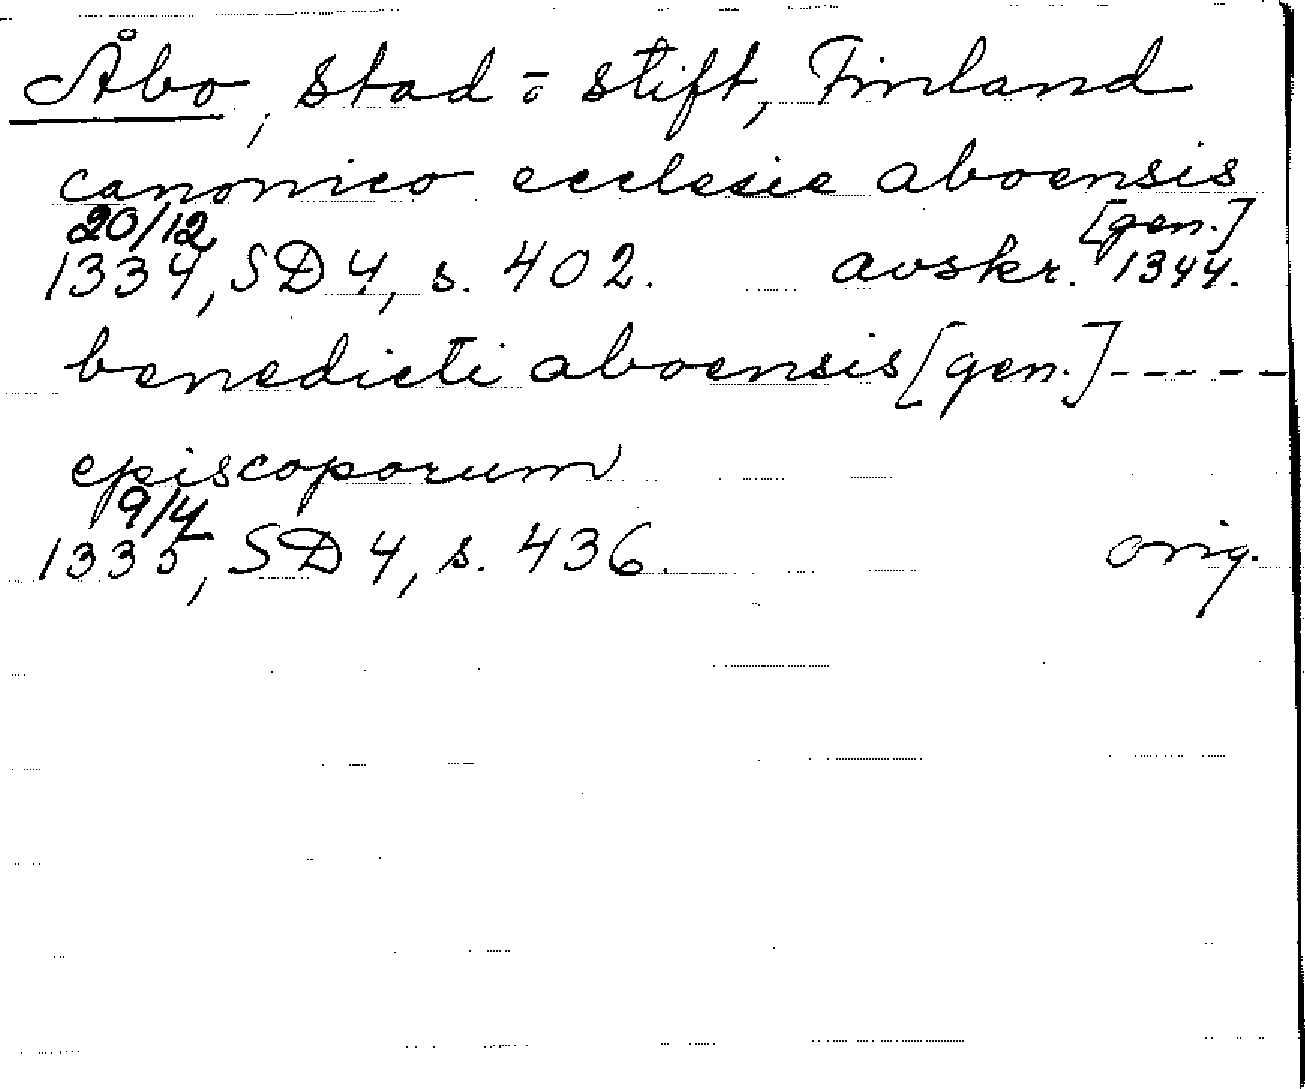 Åbo, stad = o stift, Finland
canonico ecclesie aboensis
20/12 [gen.]
1334, SD 4, s. 402. avskr. 1344.
benedicti aboensis [gen.] -----
episcoporum
9/4
1335, SD 4, s. 436. orig.